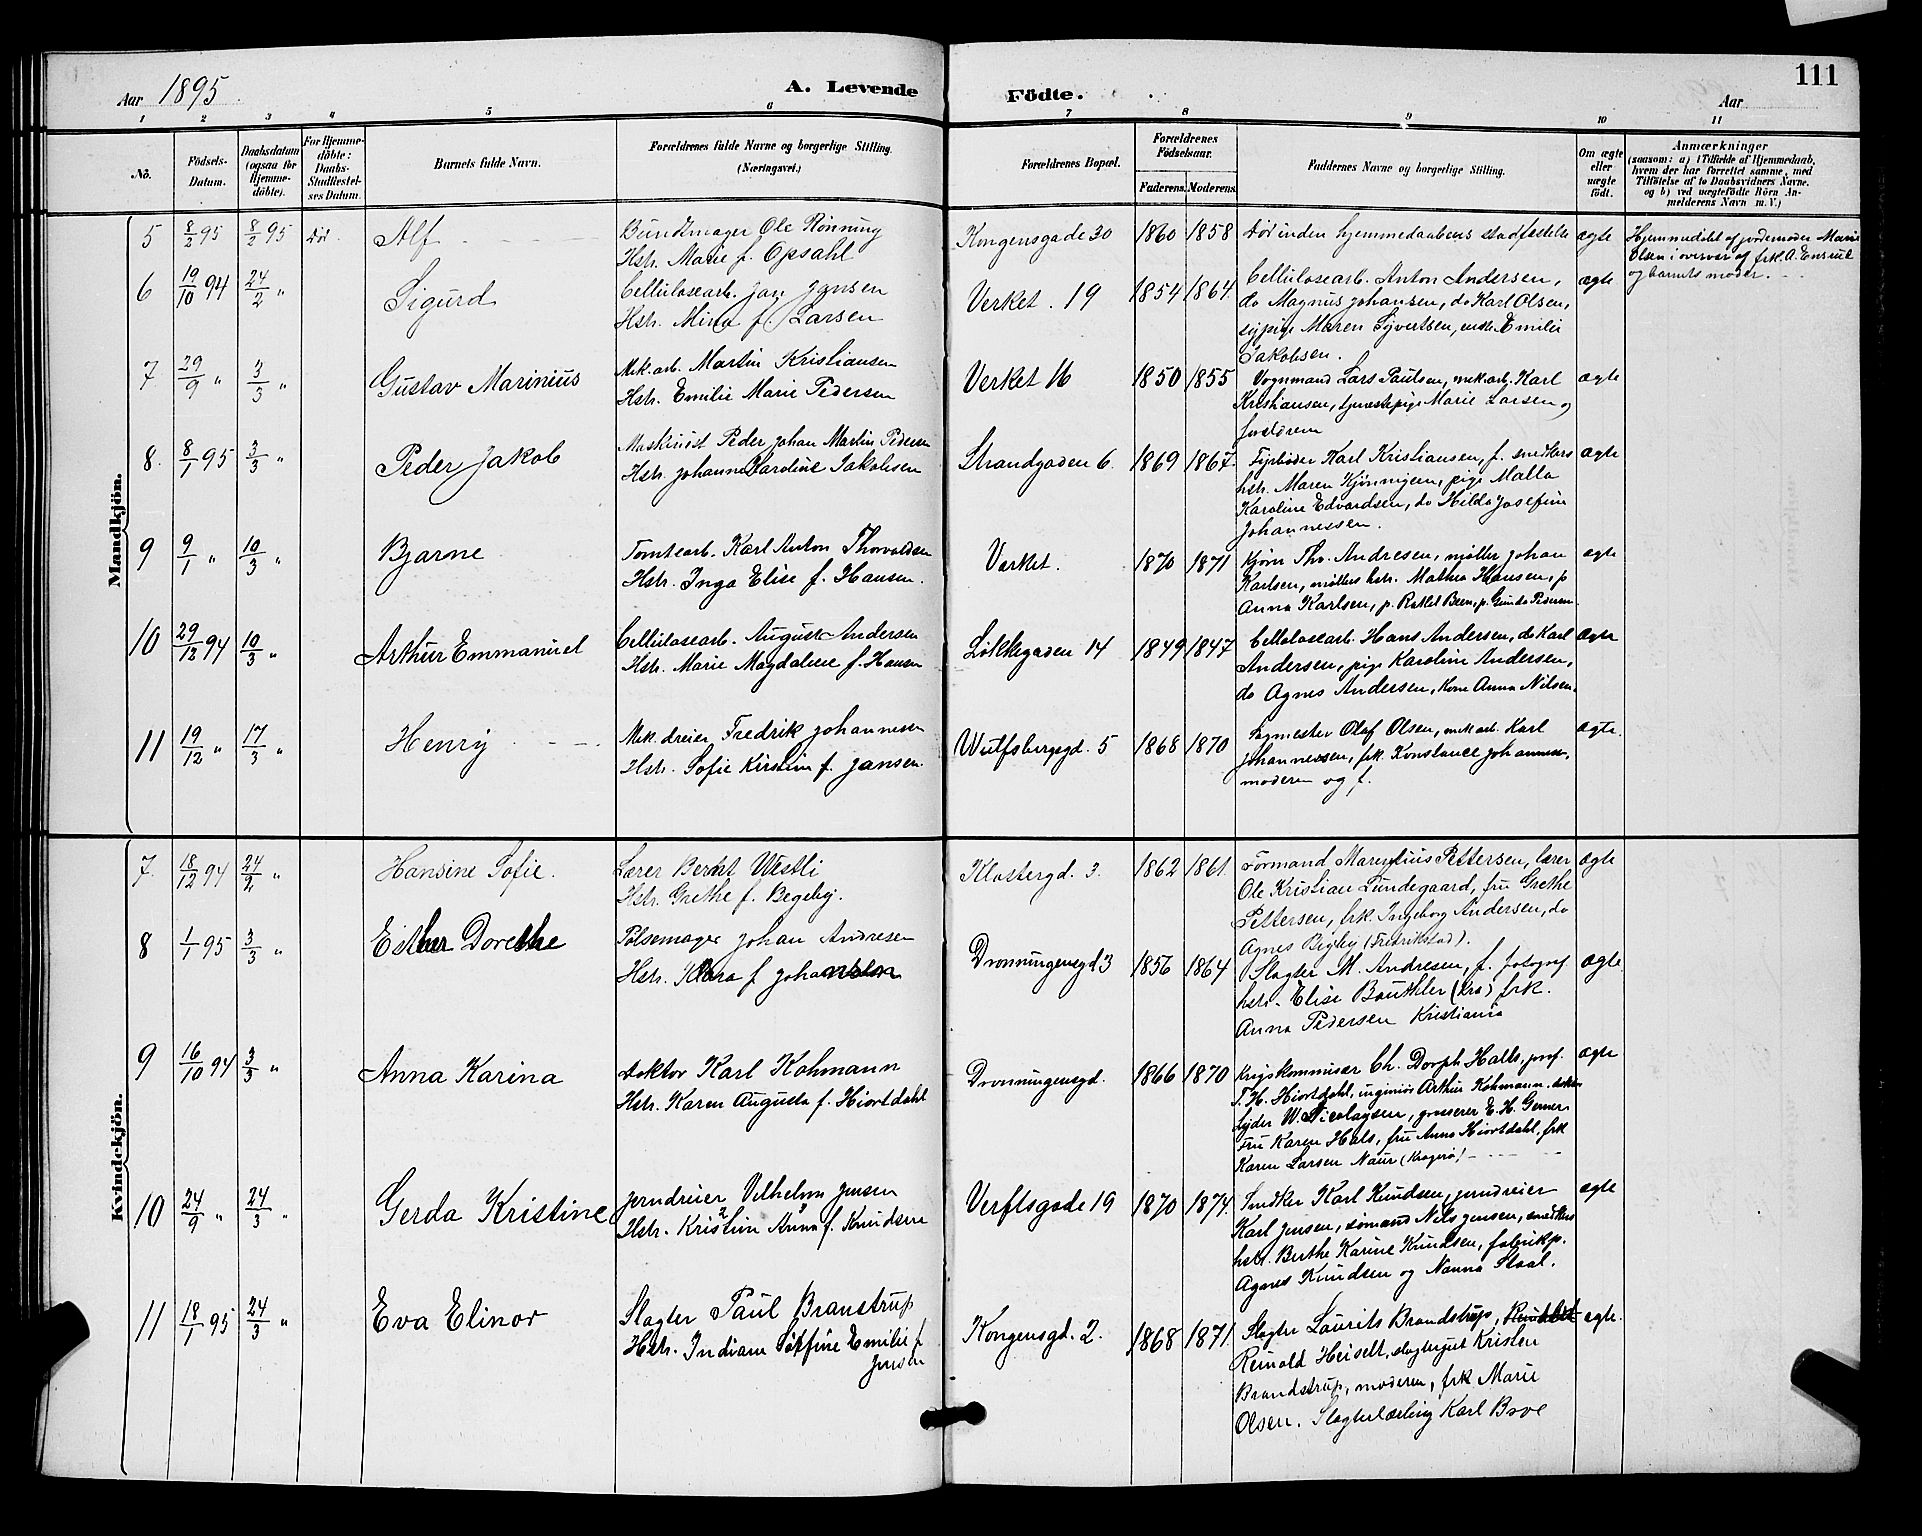 111
Aar 1895
A. Levende
Födte.
Aar
1 2 3 4 5 6 7 8 9 10 11
No.
Födsels-
Datum.
Daabsdatum
(ogsaa for
Hjemme-
döbte).
For Hjemme-
döbte:
Daabs-
Stadfæstel-
ses Datum.
Barnets fulde Navn.
Forældrenes fulde Navne og borgerlige Stilling.
(Næringsvei.)
Forældrenes Bopæl.
Forældrenes
Födselsaar.
Faderens. Moderens.
Faddernes Navne og borgerlige Stilling.
Om ægte
eller
uægte
födt.
Anmærkninger
(saasom: a) i Tilfælde af Hjemmedaab,
hvem der har forrettet samme, med
Tilföielse af to Daabsvidners Navne.
og b) ved uægtefödte Börn An-
melderens Navn m. V.)
Mandkjön.
5 8/2 95 8/2 95 död. Alf
Bundtmager Ole Rönning
Hstr. Marie f. Opsahl
Kongensgade 30 1860 1858
Död inden hjemmedaabens stadfæstelse
ægte
Hjemmedöbt af jordemoder Marie
Olsen i overvær af frk. A.
og barnets moder.
6 19/10 94 24/2 " Sigurd
Cellulosearb. Jan Jansen
Hstr. Mina f. Larsen
Verket. 19 1854 1864.
Cellulosearb. Anton Andersen,
do Magnus Johansen, do Karl Olsen,
sypige Maren Syvertsen, enke Emilie
Jakobsen.
ægte
7. 29/9 " 3/3 " Gustav Marinius
Mek. arb. Martin Kristiansen
Hstr. Emilie Marie Pedersen
Verket 16 1850 1855
Vognmand Lars Paulsen, mek. arb. Karl
Kristiansen, tjenestepige Marie Larsen og
forældrene
ægte
8. 8/1 95 3/3 " Peder Jakob
Maskinist Peder Johan Martin Pedersen
Hstr. Johanne Karoline Jakobsen
Strandgaden 6. 1869 1867.
Fyrböder Karl Kristiansen, f. snedkers
hstr. Maren Kjönnigsen, pige Malla
Karoline Edvardsen, do Hilda Josefine
Johannessen.
ægte
9 9/1 " 10/3 " Bjarne
Tomtearb. Karl Anton Thorvaldsen
Hstr. Inga Elise f. Hansen.
Værket. 1870 1871
Kjörer Thv. Andresen, möller Johan
Karlsen, möllers hstr. Mathea Hansen, p
Anna Karlsen, p. Rakel Been, p. Gunda Pedersen.
ægte
10 29/12 94 10/3 " Arthur Emmanuel
Cellulosearb. August Andersen
Hstr. Marie Magdalene f. Hansen
Lökkegaden 14 1849 1847
Cellulosearb. Hans Andersen, do Karl
Andersen, pige Karoline Andersen,
do Agnes Andersen, kone Anna Nilsen.
ægte
11 19/12 " 17/3 " Henry
Mek. dreier Fredrik Johannesen
Hstr. Sofie Kirstine f. Jansen.
Wulfsbergsgd. 5 1868 1870
Sagmester Olaf Olsen, mek. arb. Karl
Johannessen, frk. Konstance Johannessen,
moderen og f.
ægte.
Kvindekjön.
7. 18/12 94 24/2 " Hansine Sofie.
Lærer Bernt Westli
Hstr. Grethe f. Begeby.
Klostergd. 3. 1862 1861.
Formand Marentius Pettersen, lærer
Ole Kristian Lundegaard, fru Grethe
Pettersen, frk. Ingeborg Andersen, do
Agnes Begby (Fredrikstad).
ægte
8 1/1 95 3/3 " Esther Dorethe
Pölsemager Johan Andresen
Hstr. Klara f. Johannsen
Dronningensgd 3 1856 1864
Slagter M. Andresen, f. fotograf
hstr. Elise Bauthler (Kra) frk.
Anna Pedersen Kristiania
ægte
9 16/10 94 3/3 " Anna Karina
Doktor Karl Kohmann
Hstr. Karen Augusta f. Hiortdahl
Dronningensgd. 1866 1870
Krigskommisær Ch. Dorph Halls, prof.
T. H. Hiortdahl, ingeniör Arthur Kohmann.
Lyder W. Nicolaysen, grosserer E. H. Gerner
Fru Karen Hals, fru Anna Hiortdahl, frk
Karen Larsen Naur (Kragerö)
ægte
10 24/9 " 24/3 " Gerda Kristine
Jerndreier Vilhelm Jensen
Hstr. Kristine Anna f. Knudsen
Verftsgade 19 1870 1874.
Snedker Karl Knudsen, jerndreier
Karl Jensen, sömand Nils Jensen, snedkers
hstr. Berthe Karine Knudsen, fabrikp.
Agnes Knudsen og Nanna Staal.
ægte
11 18/1 95 24/3 " Eva Elinor
Slagter Paul Branstrup
Hstr. Indiane Söffine Emilie f
Jensen
Kongensgd. 2. 1868 1871.
Slagter Laurits Brandstrup,
Reinold Heiselt, slagtersvet Kristen
Brandstrup, moderen, frk. Marie
Olsen. Slagterlærling Karl Bove
ægte.